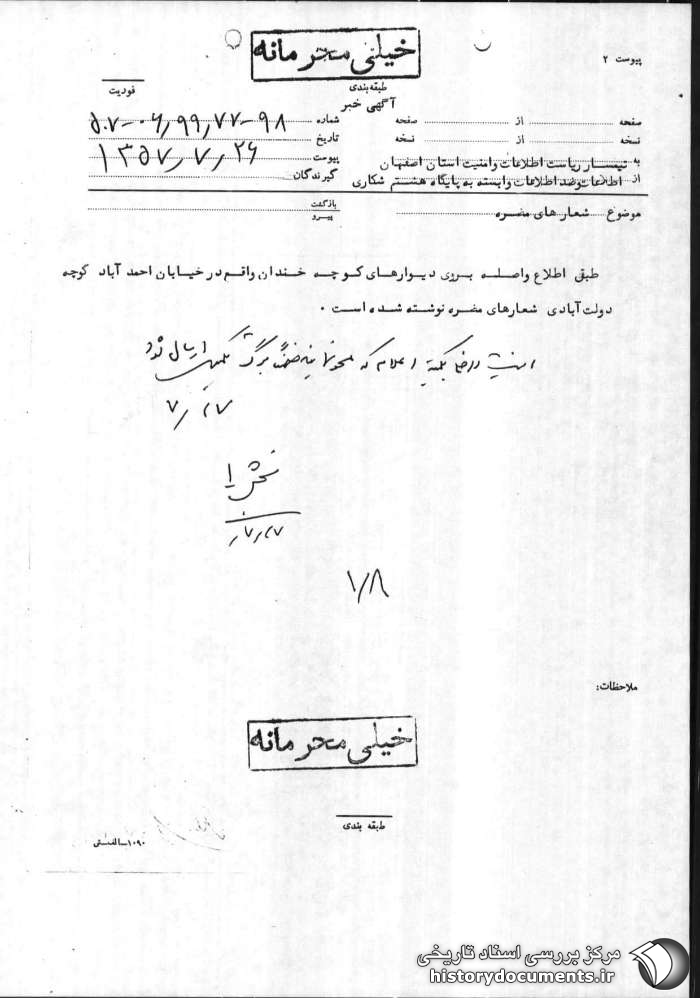 پیوست ۲
خیلی محرمانه
طبقه‌بندی
فوریت
آگهی خبر
صفحه از صفحه شماره ۹۸-۷۷/۹۹/۰۶-۵۰۷
نسخه از نسخه تاریخ ۱۳۵۷/۷/۲۶
به تیمسار ریاست اطلاعات و امنیت استان اصفهان پیوست
از اطلاعات و ضد اطلاعات وابسته به پایگاه هشتم شکاری گیرندگان
موضوع شعارهای مضره بازگشت
پیرو
طبق اطلاع واصله بر روی دیوارهای کوچه خندان واقع در خیابان احمد آباد کوچه
دولت آبادی شعارهای مضره نوشته شده است .
اعلام که برگ ارسال شود
۷/۲۷
بخش ۱
۷/۲۷
۱/۸
ملاحظات:
خیلی محرمانه
طبقه بندی
مرکز بررسی اسناد تاریخی
historydocuments.ir